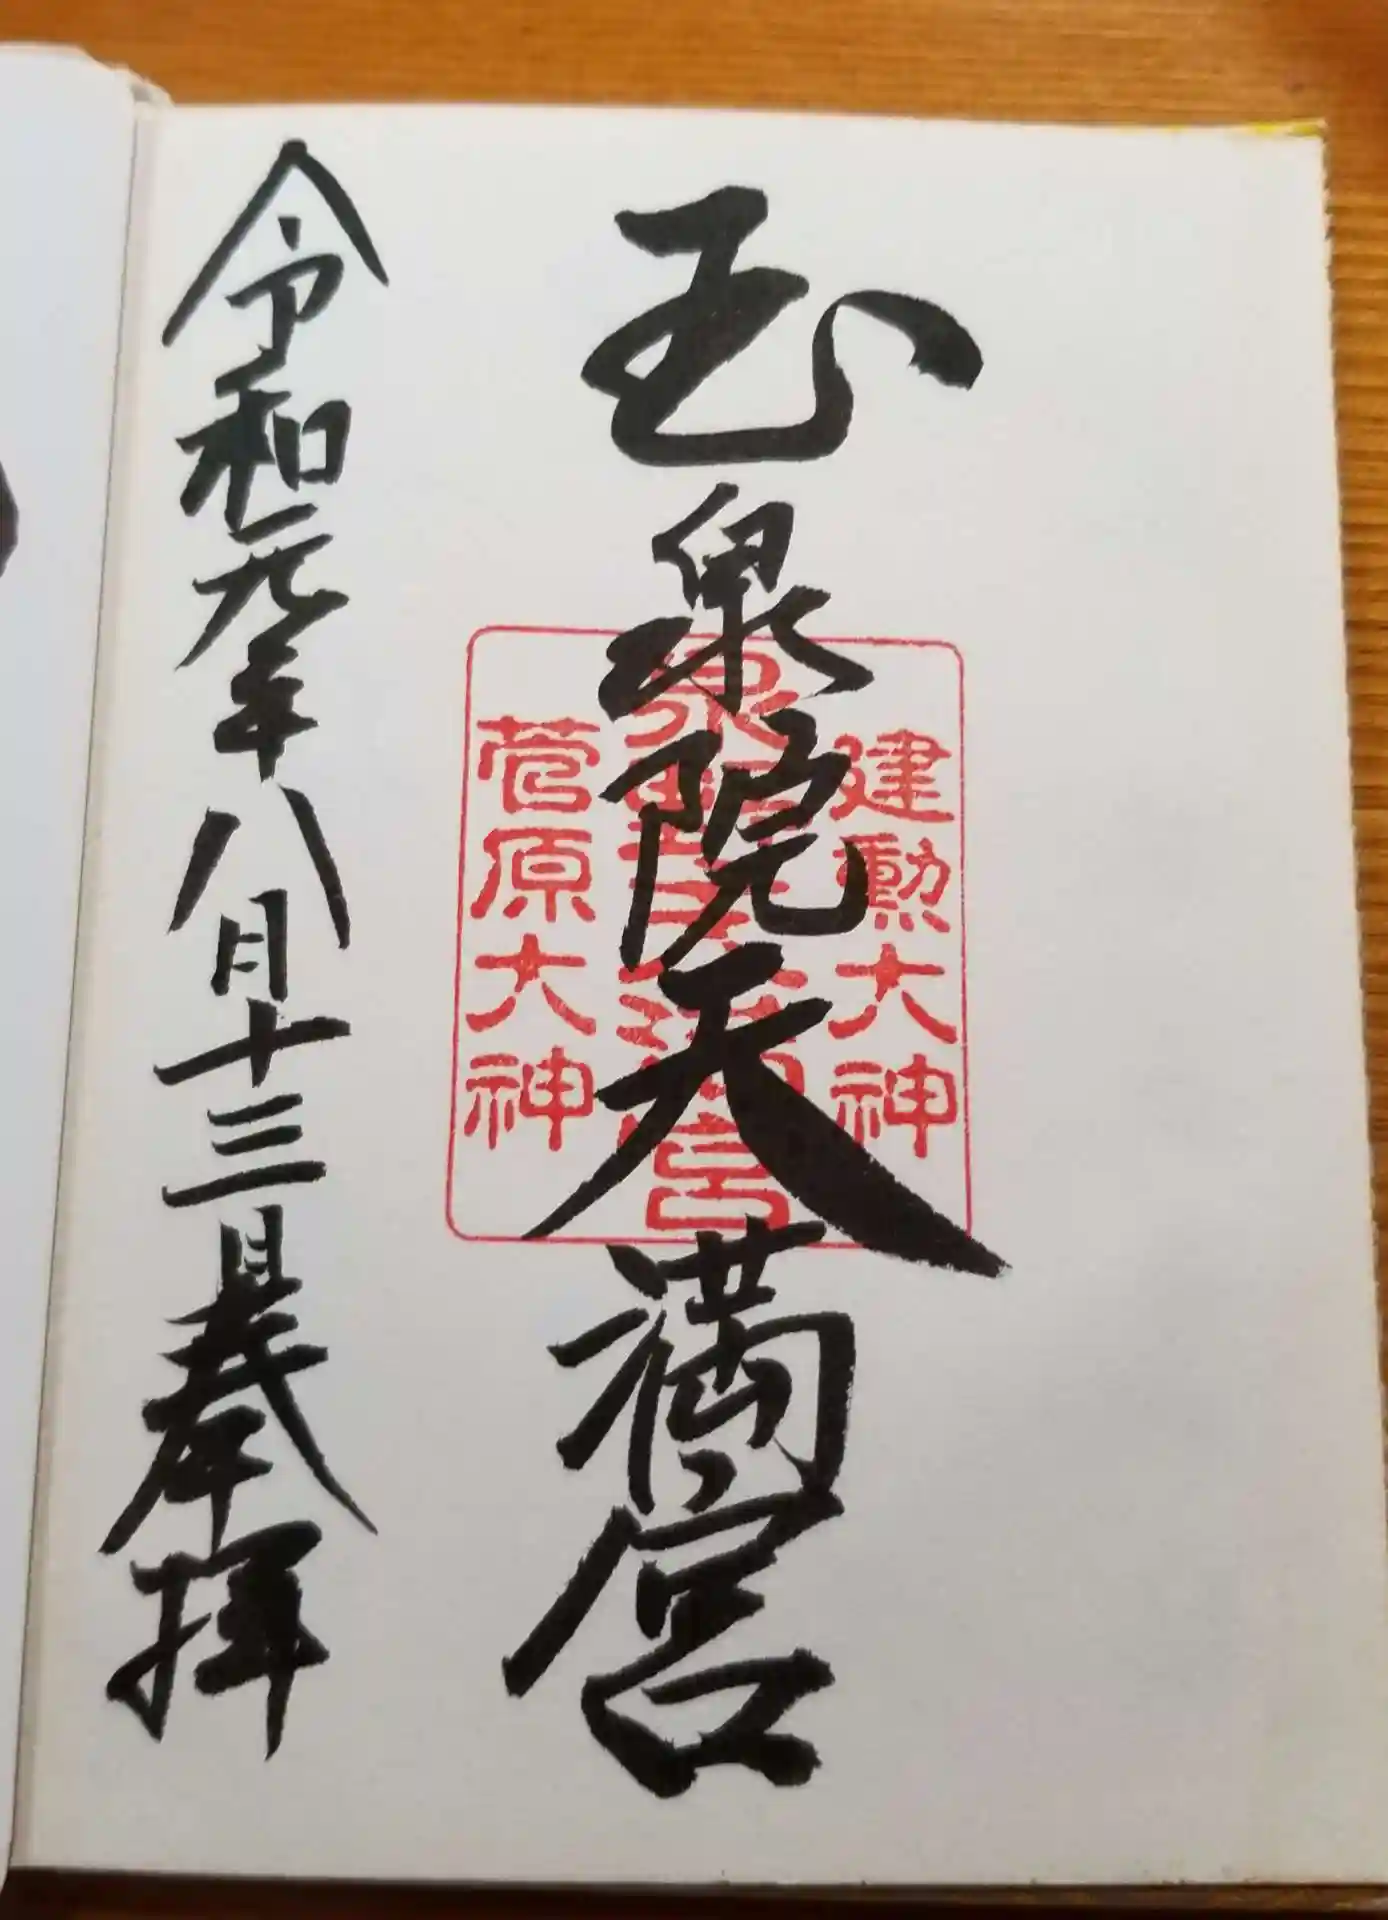 玉泉院天満宮
建勲大神
菅原大神
令和元年八月十三日奉拝